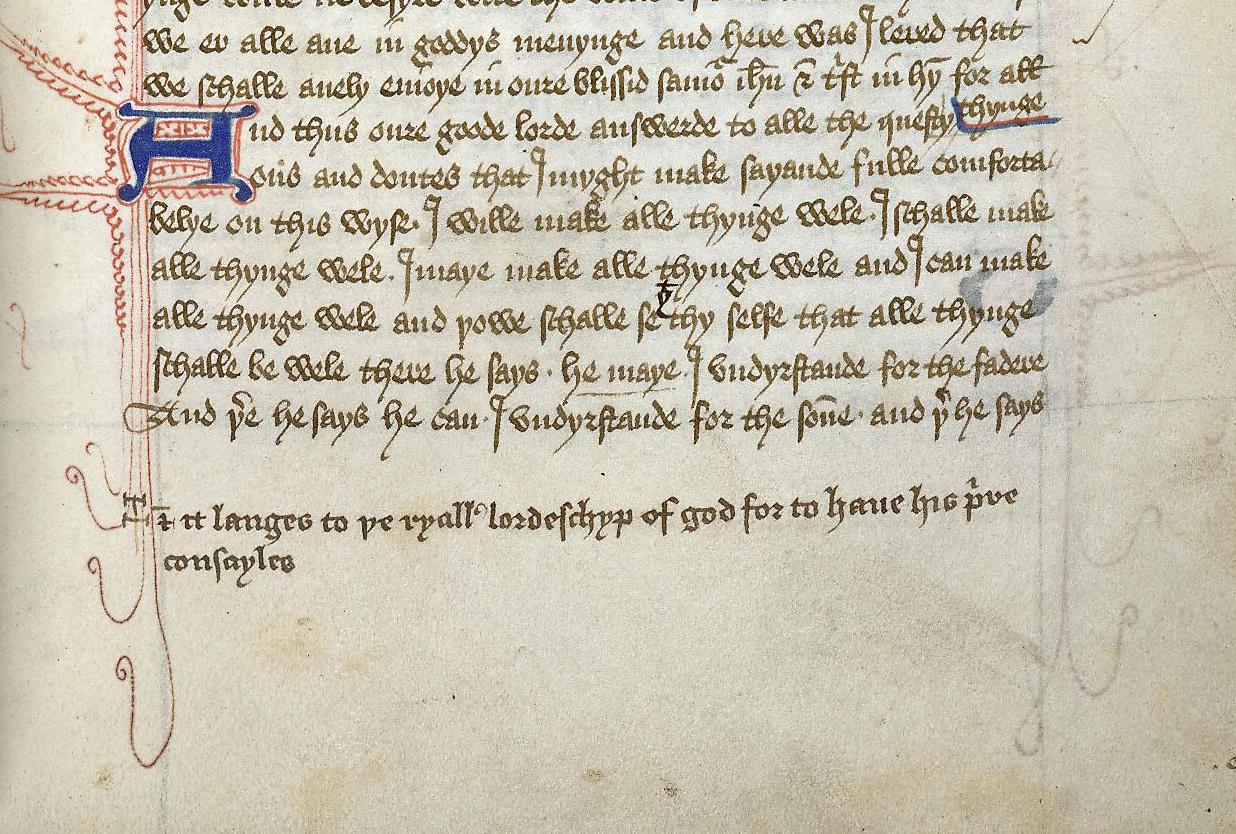 we er alle ane in goddys menynge and here was I lered that
we schalle anely enioye in oure blissid sauiō ihū & tȓst in hȳ for alle
thynge
And thus oure goode lorde answerde to alle the questy
ons and doutes that I myght make sayande fulle comforta
belye on this wyse. I wille make alle thynge wele. I schalle make
alle thynge wele. I maye make alle thynge wele and I can make
alle thynge wele and þowe schalle se þt thy selfe that alle thynge
schalle be wele there he says. he maye. I vndyrstande for the fadere
And þre he says he can. I vndyrstande for the sōne. and þr he says
& it langes to þe ryalle lordeschyp of god for to haue his pͥve
consayles